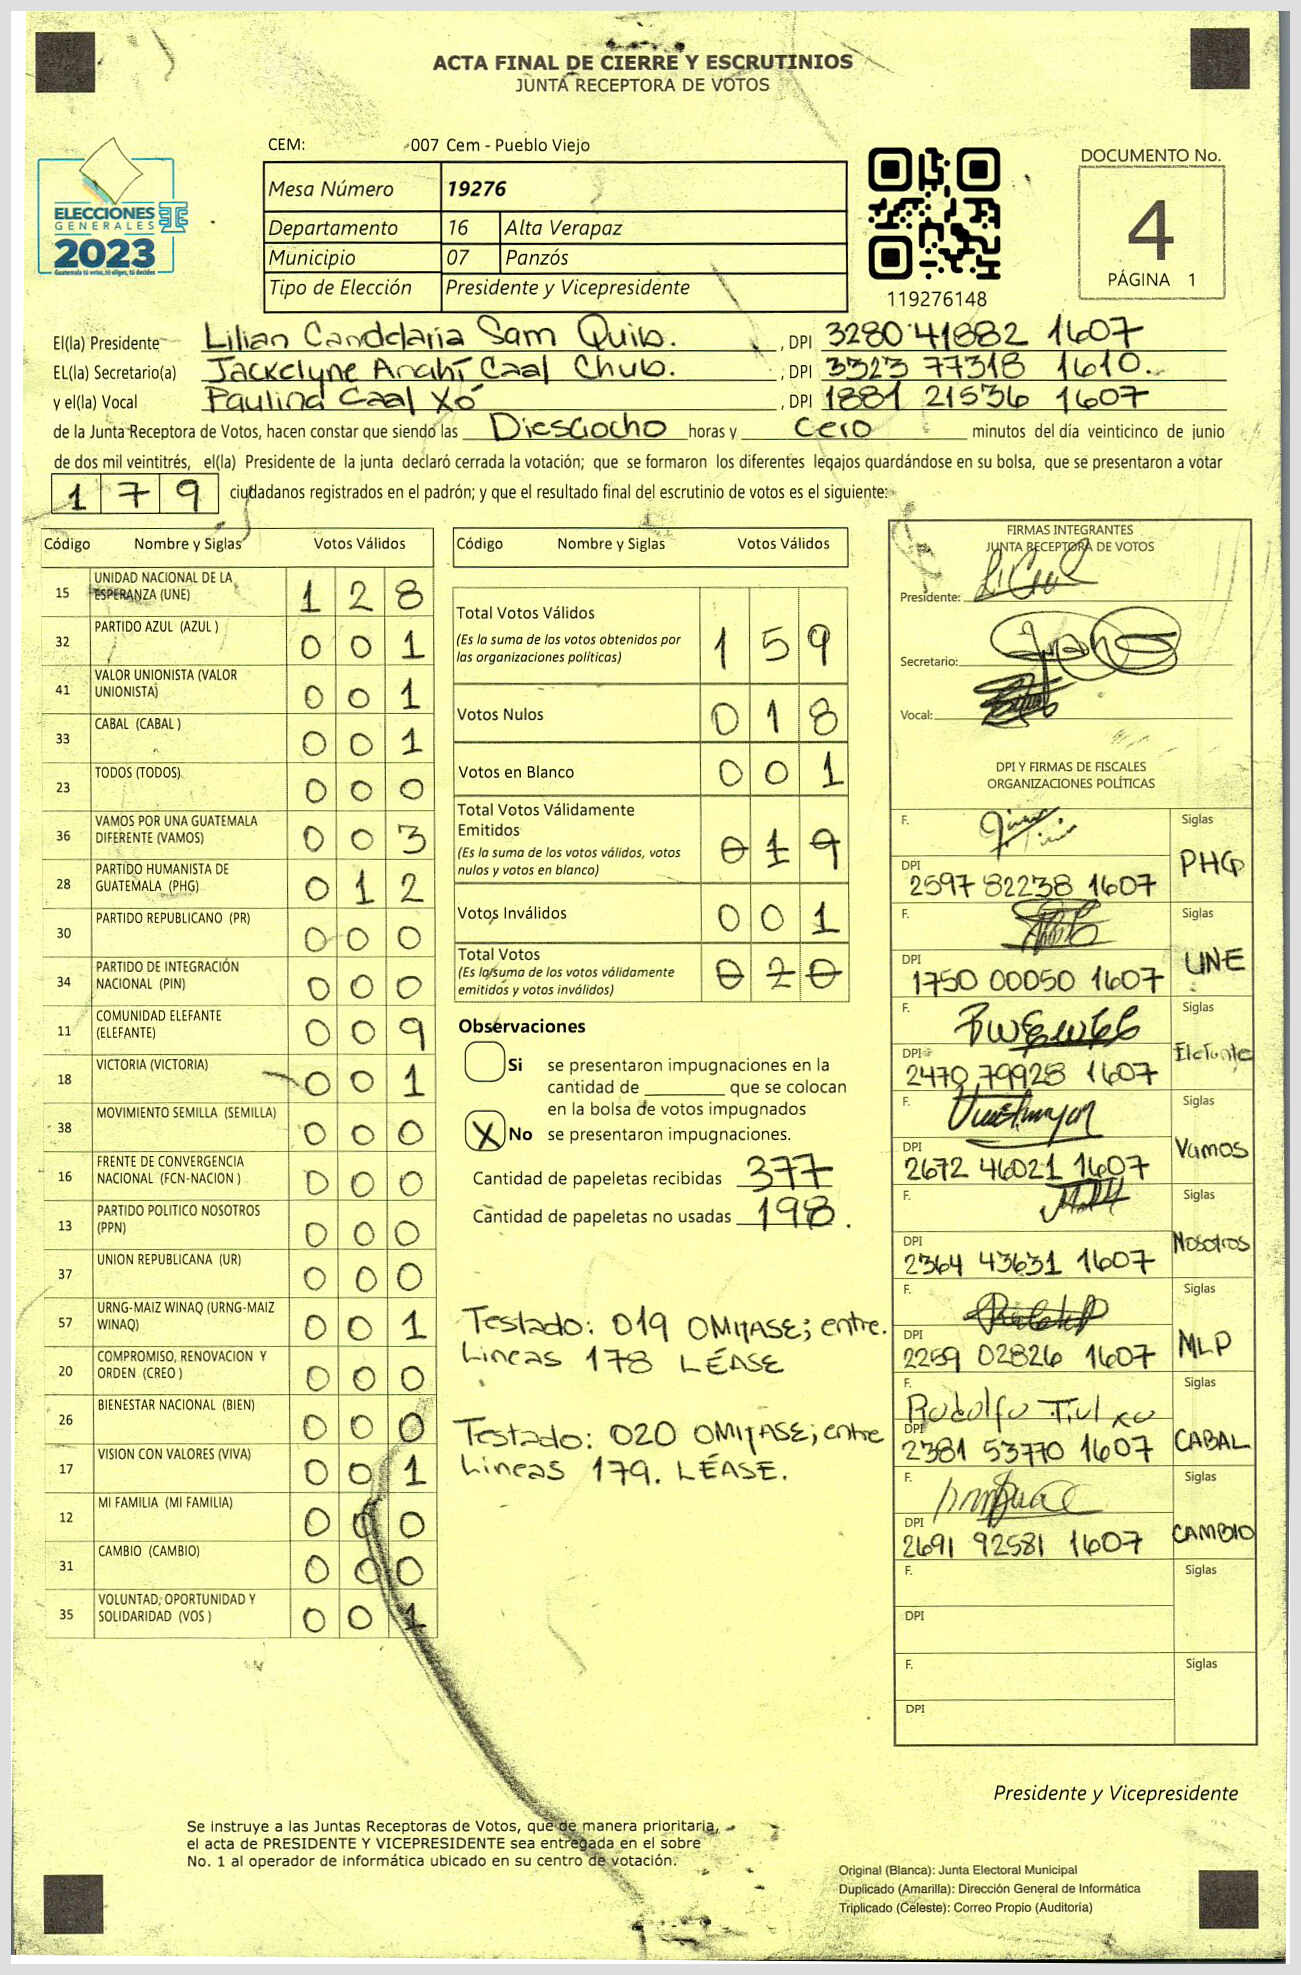 ACTA FINAL DE CIERRE Y ESCRUTINIOS
JUNTA RECEPTORA DE VOTOS
CEM: 007 Cem - Pueblo Viejo
Mesa Número 19276
Departamento 16 Alta Verapaz
Municipio 07 Panzós
Tipo de Elección Presidente y Vicepresidente
ELECCIONES
GENERALES
2023
Guatemala tú votas, tú eliges, tú decides
119276148
DOCUMENTO No.
4
PÁGINA 1
El(la) Presidente Lilian Candelaria Sam Quib. , DPI 3280 41882 1607
EL(la) Secretario(a) Jackelyne Anahí Caal Chub. , DPI 3323 77318 1610.
y el(la) Vocal Paulina Caal Xó , DPI 1881 21536 1607
de la Junta Receptora de Votos, hacen constar que siendo las Diesciocho horas y cero minutos del día veinticinco de junio
de dos mil veintitrés, el(la) Presidente de la junta declaró cerrada la votación; que se formaron los diferentes legajos guardándose en su bolsa, que se presentaron a votar
179 ciudadanos registrados en el padrón; y que el resultado final del escrutinio de votos es el siguiente:
Código Nombre y Siglas Votos Válidos
15 UNIDAD NACIONAL DE LA
ESPERANZA (UNE) 1 2 8
32 PARTIDO AZUL (AZUL ) 0 0 1
41 VALOR UNIONISTA (VALOR
UNIONISTA) 0 0 1
33 CABAL (CABAL ) 0 0 1
23 TODOS (TODOS) 0 0 0
36 VAMOS POR UNA GUATEMALA
DIFERENTE (VAMOS) 0 0 3
28 PARTIDO HUMANISTA DE
GUATEMALA (PHG) 0 1 2
30 PARTIDO REPUBLICANO (PR) 0 0 0
34 PARTIDO DE INTEGRACIÓN
NACIONAL (PIN) 0 0 0
11 COMUNIDAD ELEFANTE
(ELEFANTE) 0 0 9
18 VICTORIA (VICTORIA) 0 0 1
38 MOVIMIENTO SEMILLA (SEMILLA) 0 0 0
16 FRENTE DE CONVERGENCIA
NACIONAL (FCN-NACION ) 0 0 0
13 PARTIDO POLITICO NOSOTROS
(PPN) 0 0 0
37 UNION REPUBLICANA (UR) 0 0 0
57 URNG-MAIZ WINAQ (URNG-MAIZ
WINAQ) 0 0 1
20 COMPROMISO, RENOVACION Y
ORDEN (CREO ) 0 0 0
26 BIENESTAR NACIONAL (BIEN) 0 0 0
17 VISION CON VALORES (VIVA) 0 0 1
12 MI FAMILIA (MI FAMILIA) 0 0 0
31 CAMBIO (CAMBIO) 0 0 0
35 VOLUNTAD, OPORTUNIDAD Y
SOLIDARIDAD (VOS ) 0 0 1
Código Nombre y Siglas Votos Válidos
Total Votos Válidos
(Es la suma de los votos obtenidos por
las organizaciones políticas) 1 5 9
Votos Nulos 0 1 8
Votos en Blanco 0 0 1
Total Votos Válidamente
Emitidos
(Es la suma de los votos válidos, votos
nulos y votos en blanco) 0 1 9
Votos Inválidos 0 0 1
Total Votos
(Es la suma de los votos válidamente
emitidos y votos inválidos) 0 2 0
Observaciones
Si se presentaron impugnaciones en la
cantidad de ________ que se colocan
en la bolsa de votos impugnados
X No se presentaron impugnaciones.
Cantidad de papeletas recibidas 377
Cantidad de papeletas no usadas 198.
Testado: 019 OMITASE; entre.
Lineas 178 LÉASE
Testado: 020 OMITASE; entre
Lineas 179. LÉASE.
FIRMAS INTEGRANTES
JUNTA RECEPTORA DE VOTOS
Presidente:
Secretario:
Vocal:
DPI Y FIRMAS DE FISCALES
ORGANIZACIONES POLÍTICAS
F. Siglas
DPI 2597 82238 1607 PHG
F. Siglas
DPI 1750 00050 1607 UNE
F. Siglas
DPI 2470 79928 1607 Elefante
F. Siglas
DPI 2672 46021 1607 Vamos
F. Siglas
DPI 2364 43631 1607 Nosotros
F. Siglas
DPI 2259 02826 1607 MLP
F. Rodolfo Tiul Xo Siglas
DPI 2381 53770 1607 CABAL
F. Siglas
DPI 2691 92581 1607 CAMBIO
F. Siglas
DPI
F. Siglas
DPI
Presidente y Vicepresidente
Se instruye a las Juntas Receptoras de Votos, que de manera prioritaria,
el acta de PRESIDENTE Y VICEPRESIDENTE sea entregada en el sobre
No. 1 al operador de informática ubicado en su centro de votación.
Original (Blanca): Junta Electoral Municipal
Duplicado (Amarilla): Dirección General de Informática
Triplicado (Celeste): Correo Propio (Auditoria)